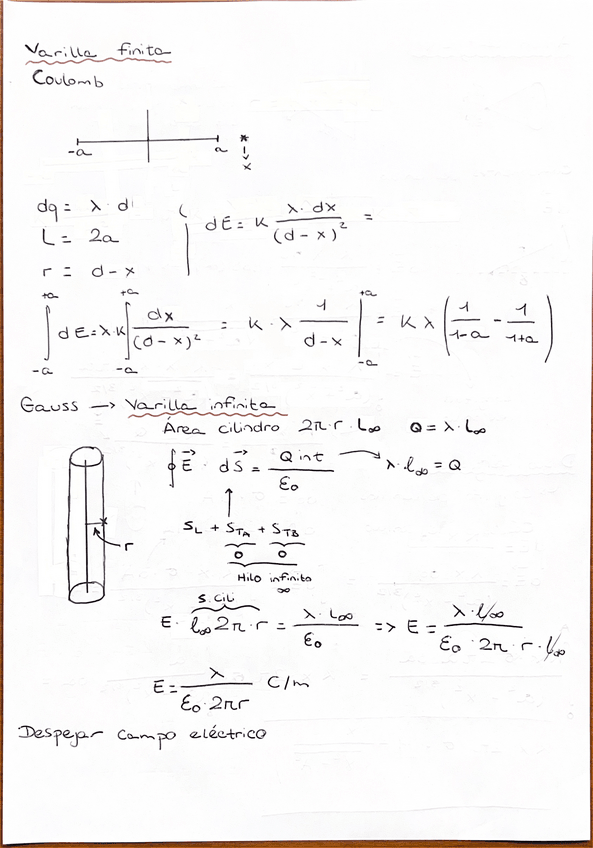 Varilla finita
Coulomb
-a a x
dq = λ · d
L = 2a
r = d - x
dE = K λ · dx / (d - x)² =
∫₋ₐ⁺ᵃ dE = λ · K ∫₋ₐ⁺ᵃ dx / (d - x)² = K · λ 1 / d - x |₋ₐ⁺ᵃ = K λ (1 / 1-a - 1 / 1+a)
Gauss → Varilla infinita
Área cilindro 2π · r · L∞ Q = λ · L∞
∮ E⃗ · dS⃗ = Q int / ε₀ → λ · l∞ = Q
S_L + S_TA + S_TB
r
0 0
Hilo infinito
∞
S. Cil
E · l∞ 2π · r = λ · L∞ / ε₀ => E = λ · l∞ / ε₀ · 2π · r · l∞
E = λ / ε₀ · 2πr C/m
Despejar campo eléctrico